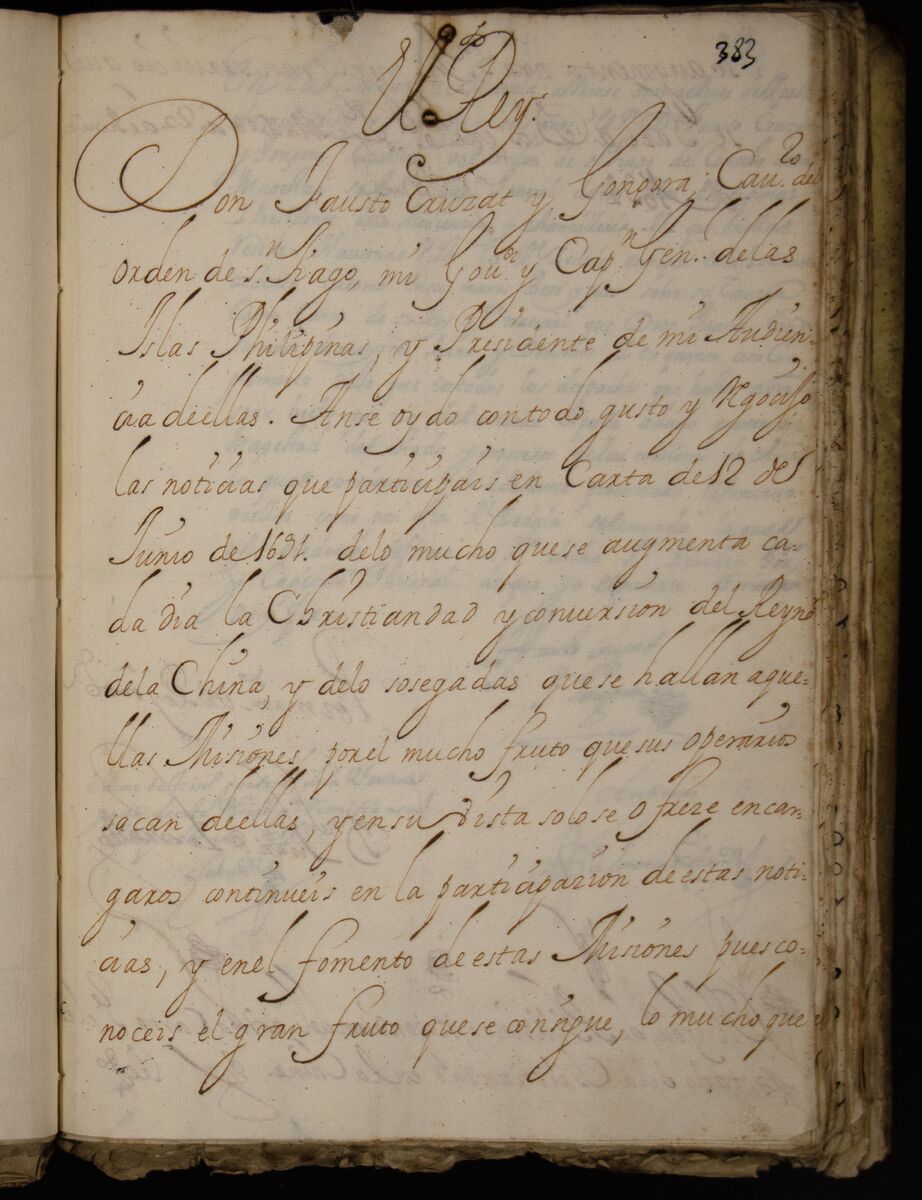 383
El Rey.
Don Fausto Cruzat y Gongora, Cau.ro del
orden de s.n tiago, mi Gou.or y Cap.n Gen.l de las
Islas Philipinas, y Presidente de mi Audien-
cia de ellas. Anse oydo con todo gusto y Regocijo
las noticias que participais en Carta de 12 de
Junio de 1691. de lo mucho que se augmenta ca-
da dia la Christiandad y conuersion del Reyno
de la China, y de lo sosegadas que se hallan aque-
llas Misiones por el mucho fruto que sus operarios
sacan de ellas, y en su vista solo se ofreze encar-
garos continueis en la participazion de estas noti-
cias, y en el fomento de estas Misiones pues co-
noceis el gran fruto que se consigue, lo mucho que